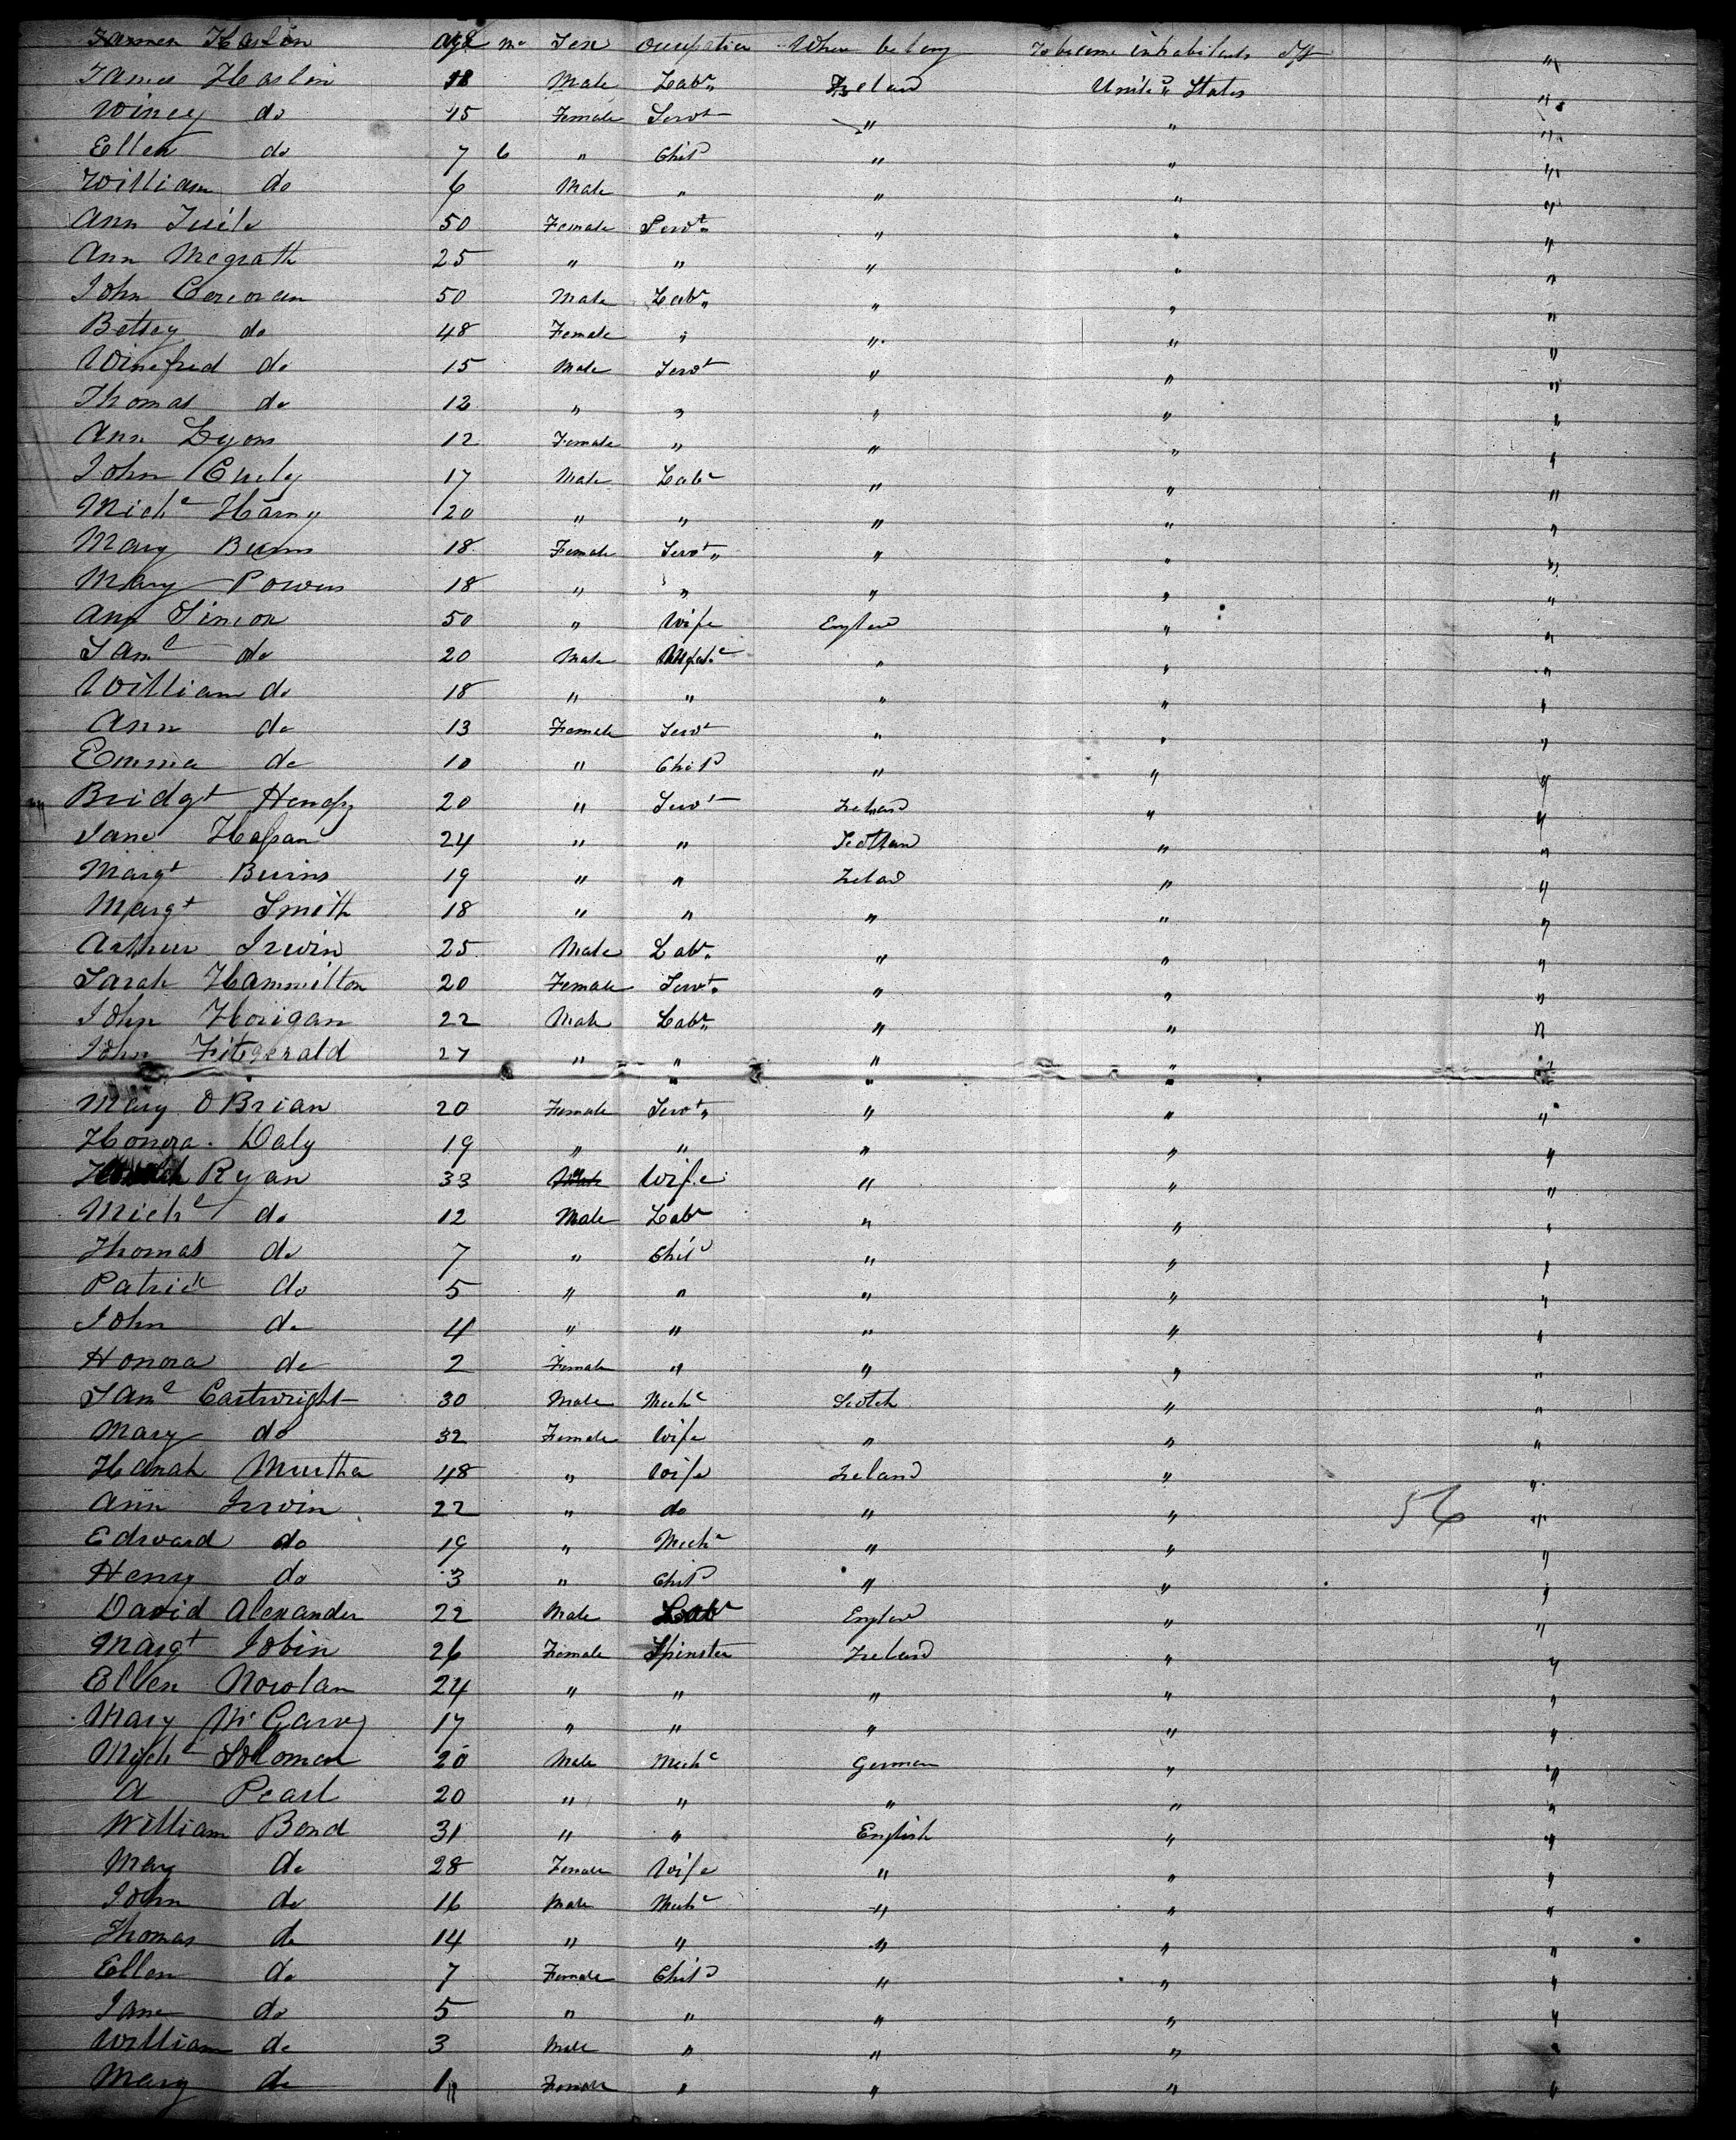 James Haslin age mo Sex occupation Where belong To become inhabitants off "
James Haslin 18 Male Labr Ireland United States "
Winey do 45 Female Servt " " "
Ellen do 7 6 " Chil " " "
William do 6 Male " " " "
Ann 50 Female Servt " " "
Ann Mcgrath 25 " " " " "
John Corcoran 50 Male Labr " " "
Betsey do 48 Female " " " "
Winefred do 15 Male Servt " " "
Thomas do 12 " " " " "
Ann Lyons 12 Female " " " "
John Curly 17 Male Labr " " "
Michl Harny 20 " " " " "
Mary Burns 18 Female Servt " " "
Mary Powers 18 " " " " "
Ann Simeon 50 " Wife England " "
Saml do 20 Male " " "
William do 18 " " " " "
Ann do 13 Female Servt " " "
Emma do 10 " Chil " " "
Bridgt 20 " Servt Ireland " "
Jane 24 " " Scotland " "
Margt Burns 19 " " Ireland " "
Margt Smith 18 " " " " "
Arthur Irwin 25 Male Labr " " "
Sarah Hammilton 20 Female Servt " " "
John Horigan 22 Male Labr " " "
John Fitgerald 27 " " " " "
" " "
Mary O Brian 20 Female Servt " " "
Honora Daly 19 " " " " "
Ryan 33 Wife " " "
Michl do 12 Male Labr " " "
Thomas do 7 " Chil " " "
Patrick do 5 " " " " "
John do 4 " " " " "
Honora do 2 Female " " " "
Saml Cartwright 30 Male Mechc Scotch " "
Mary do 32 Female Wife " " "
Hanah Murtha 48 " Wife Ireland " "
Ann Irwin 22 " do " " 56 "
Edward do 19 " Mechc " " "
Henry do 3 " Chil " " "
David Alexander 22 Male Labr England " "
Margt Tobin 26 Female Spinster Ireland " "
Ellen Nowlan 24 " " " " "
Mary McGarvy 17 " " " " "
Mychl Soloman 20 Male Mechc German " "
A Pearl 20 " " " " "
William Bond 31 " " English " "
Mary do 28 Female Wife " " "
John do 16 Male Mechc " " "
Thomas do 14 " " " " "
Ellen do 7 Female Chil " " "
Jane do 5 " " " " "
William do 3 Male " " " "
Mary do 1 Female " " " "